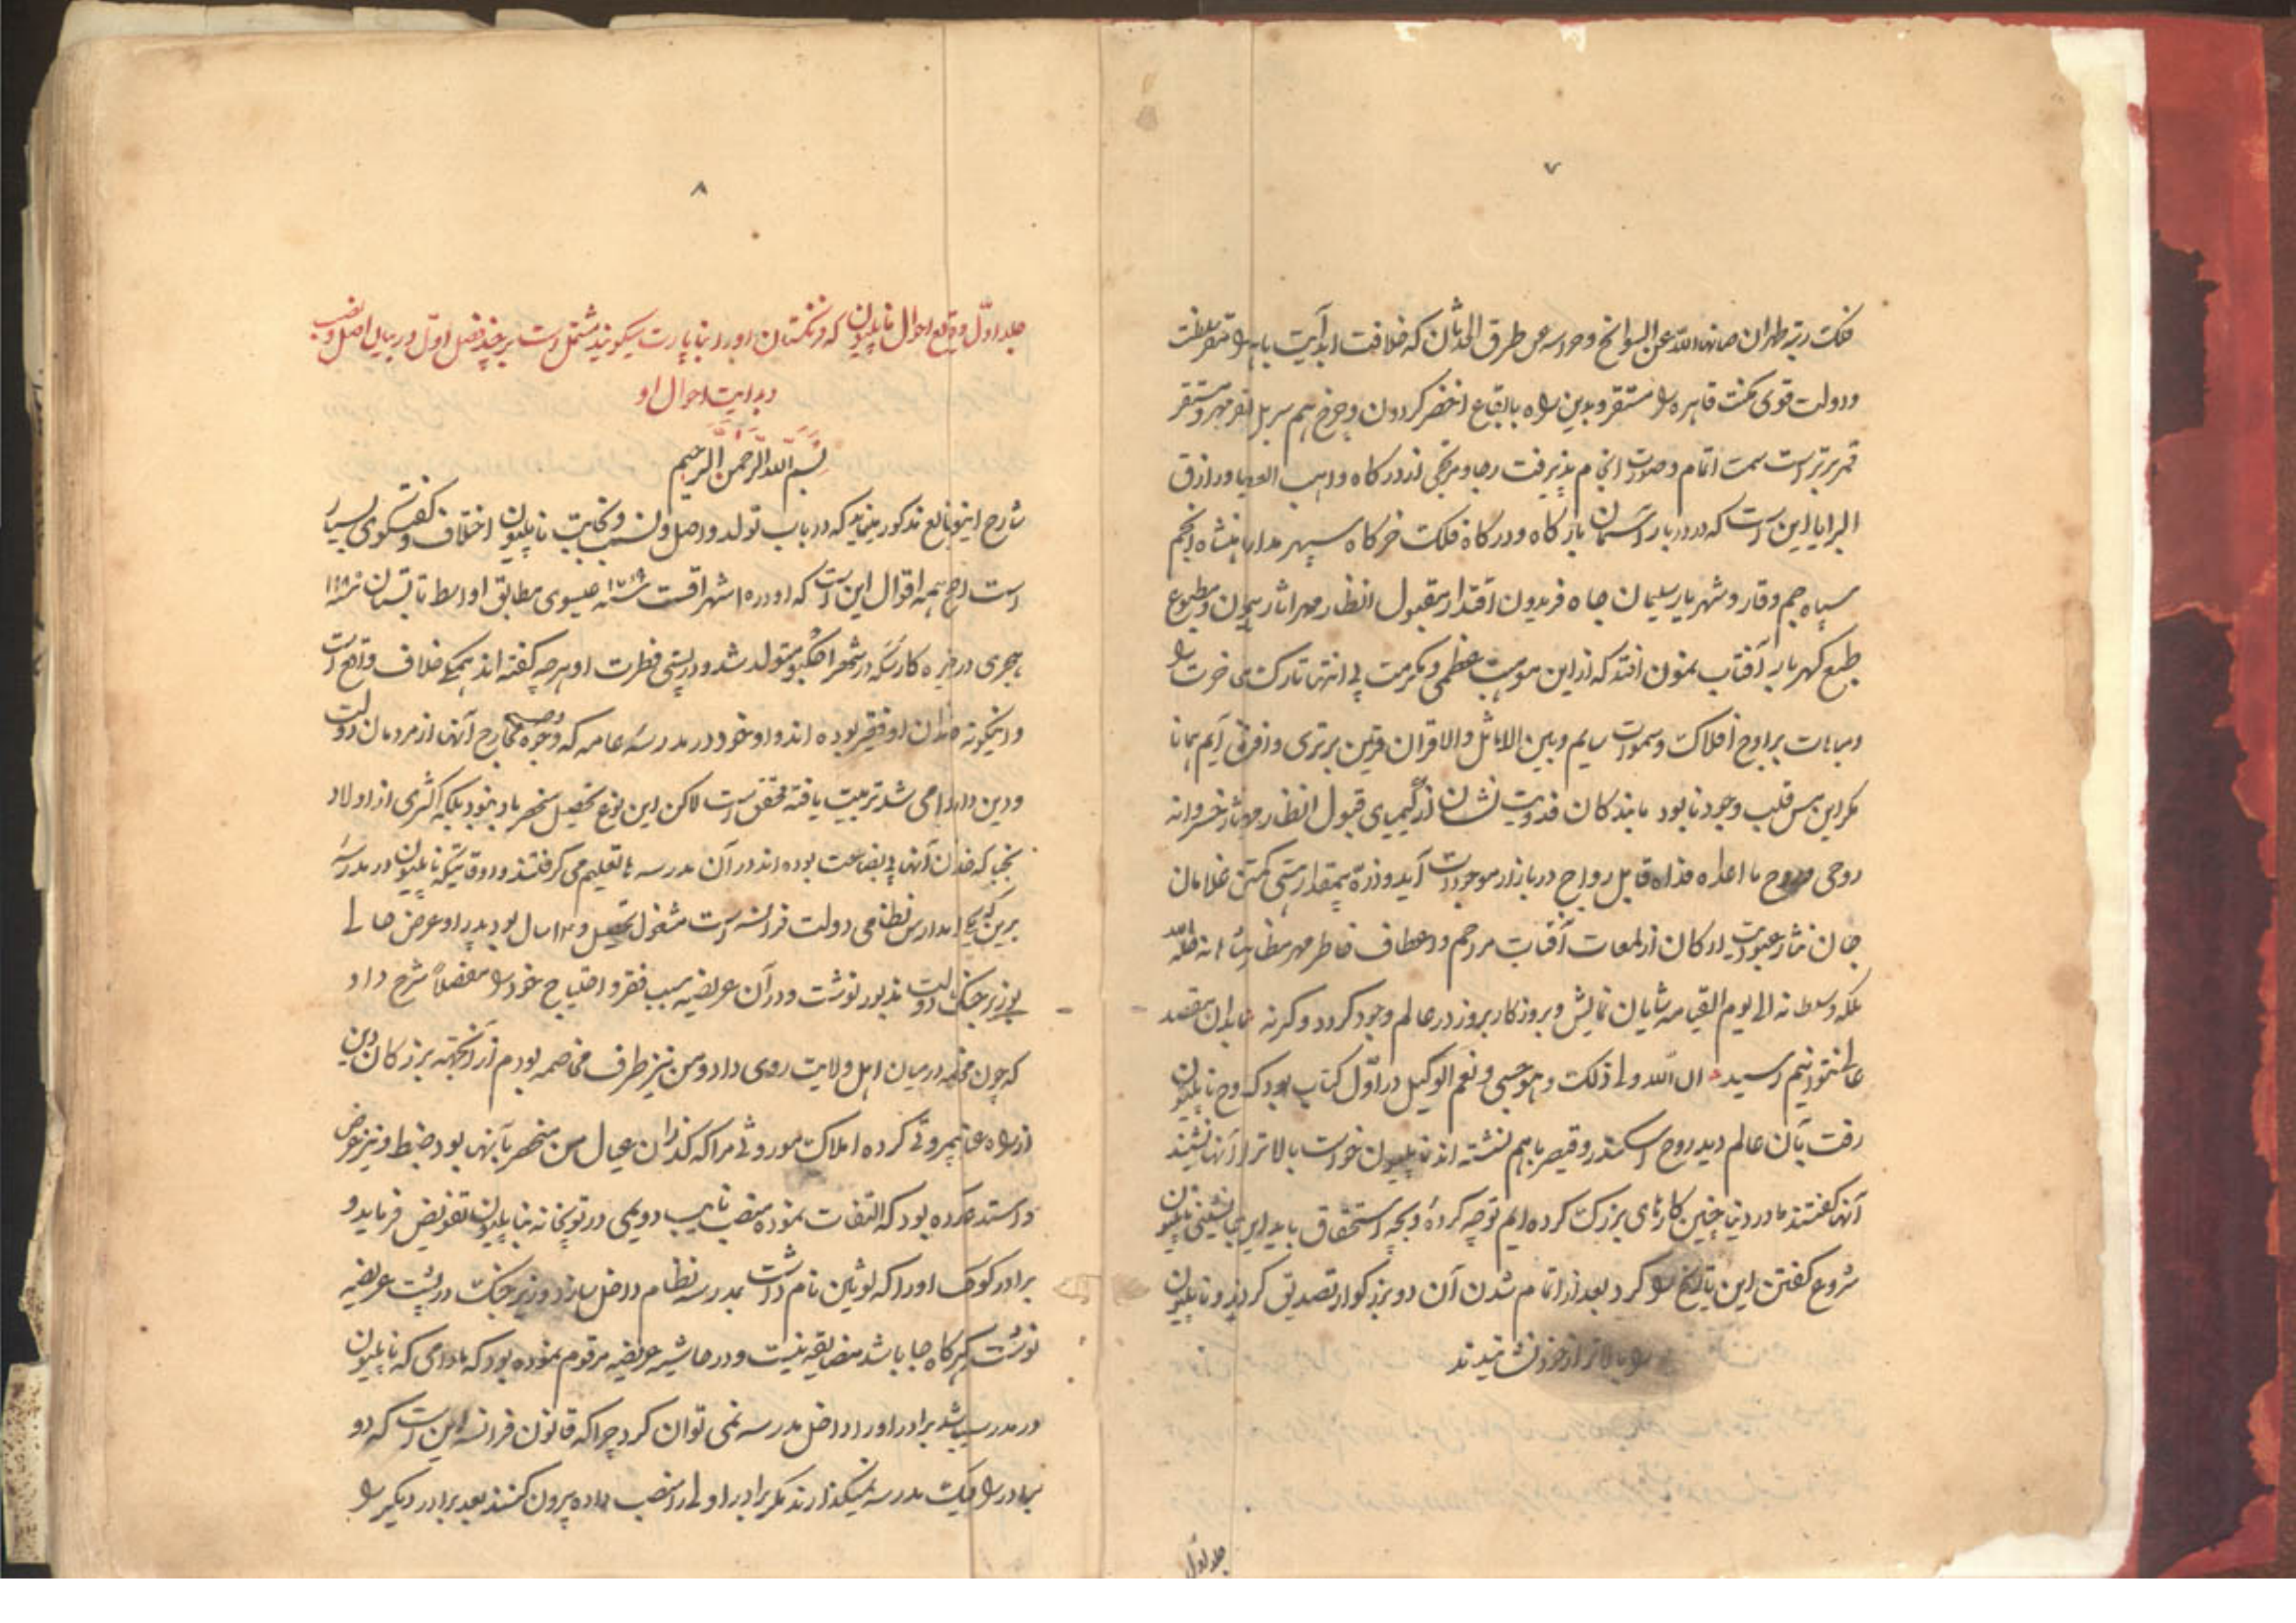 ۷
فلک رتبه طهران صانها الله عن السوانح و حرسه عن طرق الحدثان که خلافت ابد آیت باهره را مقر سلطنت
و دولت قوی مکنت قاهره را مستقر و بدین راه بابقاع اخضر گردون و چرخ هم سر بل از مقر مهر و مستقر
قمر برتر است سمت اتمام و صورت انجام پذیرفت رجا و مرتجی از درگاه واهب العطایا و رازق
البرایا این است که در دربار آسمان بارگاه و درگاه فلک خرگاه سپهر مدار شاهنشاه انجم
سپاه جم وقار و شهریار سلیمان جاه فریدون اقتدار مقبول انظار مهر اثار همایون و مطبوع
طبع گهربار آفتاب نمون افتد که از این موهبت عظمی و مکرمت بی انتها تارک مفاخرت را
و مباهات بر اوج افلاک و سموات سایم و بین الاماثل والاقران قرین برتری و افزونی آیم همانا
مگر این مس قلب وجود نابود بندگان فدویت نشان از کیمیای قبول انظار مهر اثار خسروانه
روحی و روح ما اعداه فداه قابل رواج در بازار موجودات آید و ذرهٔ بیمقدار هستی کمترین غلامان
جان نثار عبودیت ارکان از لمعات آفتاب مراحم و اعطاف خاطر مهر مظاهر شاهانه خلد الله
ملکه و سلطانه الی یوم القیامه شایان نمایش و بروز کار بروز در عالم وجود گردد و گرنه مابدان مقصد
عالی نتوانیم رسید ان الله ولی ذلک و هو حسبی و نعم الوکیل در اول کتاب بود که روح ناپلیون
رفت بآن عالم دید روح اسکندر و قیصر باهم نشسته اند ناپلیون خواست بالاتر از آنها نشیند
آنها گفتند ما در دنیا چنین کارهای بزرگ کرده ایم تو چه کردهٔ و بچه استحقاق باید اینجا بنشینی ناپلیون
شروع گفتن این تاریخ را کرد بعد از اتمام شدن آن دو بزرگوار تصدیق کردند و ناپلیون
را بالاتر از خود نشانیدند
جلد اول
۸
جلد اول وقایع احوال ناپلیون که فرنگستان او را بناپارت میگویند مشتمل است بر چند فصل اول در بیان اصل و نسب
و بدایت احوال او
بسم الله الرحمن الرحیم
شارح این وقایع مذکور مینماید که در باب تولد و اصل و نسب و نجابت ناپلیون اختلاف و گفتگوی بسیار
است اصح همه اقوال این است که او در ۱۵ شهر اقست سنه ۱۷۶۹ عیسوی مطابق اواسط تابستان سنه ۱۱۸۰
هجری در جزیره کارسکه در شهر اجکیو متولد شد و در پستی فطرت او هرچه گفته اند همگی خلاف واقع است
و اینگونه خاندان او فقیر بوده اند و او خود در مدرسهٔ عامه که وجوه مخارج آنها از مردمان دولت
و دین داده می شد تربیت یافته محقق است لاکن این نوع تحصیل منحصر باو نبود بلکه اکثری از اولاد
نجبا که خاندان آنها بی بضاعت بوده اند در آن مدرسه ها تعلیم می گرفتند و در وقتیکه ناپلیون در مدرسهٔ
برین که یکی از مدارس نظامی دولت فرانسه است مشغول تحصیل و ۱۳ سال بود پدر او عرض حالی
بوزیر جنگ دولت مذبور نوشت و در آن عریضه سبب فقر و احتیاج خود را مفصلاً شرح داد
که چون در میان اهل ولایت روی داد و من نیز طرف مخاصمه بودم از آنجهته بزرگان دین
از راه عنا بیمروتی کرده املاک موروثی مرا که گذران عیال من منحصر بآنها بود ضبط و نیز عرض
و استدعا کرده بود که التفات نموده منصب نایب دویمی در توپخانه بناپلیون تفویض فرماید و
برادر کوچک او را که لوثین نام داشت بمدرسه نظام داخل سازد وزیر جنگ در پشت عریضه
نوشت هرگاه جا باشد مضایقه نیست و در حاشیه عریضه مرقوم نموده بود که مادامی که ناپلیون
در مدرسه باشد برادر او را داخل مدرسه نمی توان کرد چرا که قانون فرانسه این است که دو
برادر را بیک مدرسه نمیگذارند مگر برادر اولی را منصب داده بیرون کنند بعد برادر دیگر را